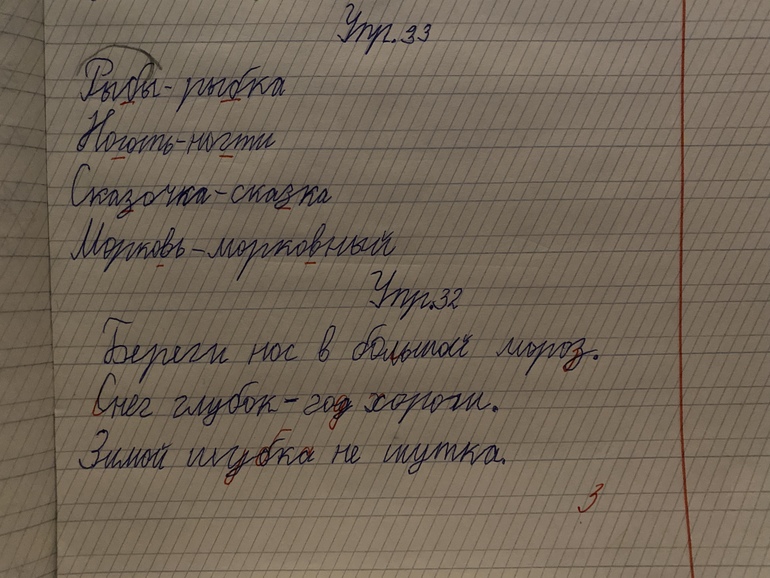 Упр. 33
Рыбы - рыбка
Ноготь - ногти
Сказочка - сказка
Морковь - морковный
Упр. 32
Береги нос в большой мороз.
Снег глубок - год хорош.
Зимой шубка не шутка.
3